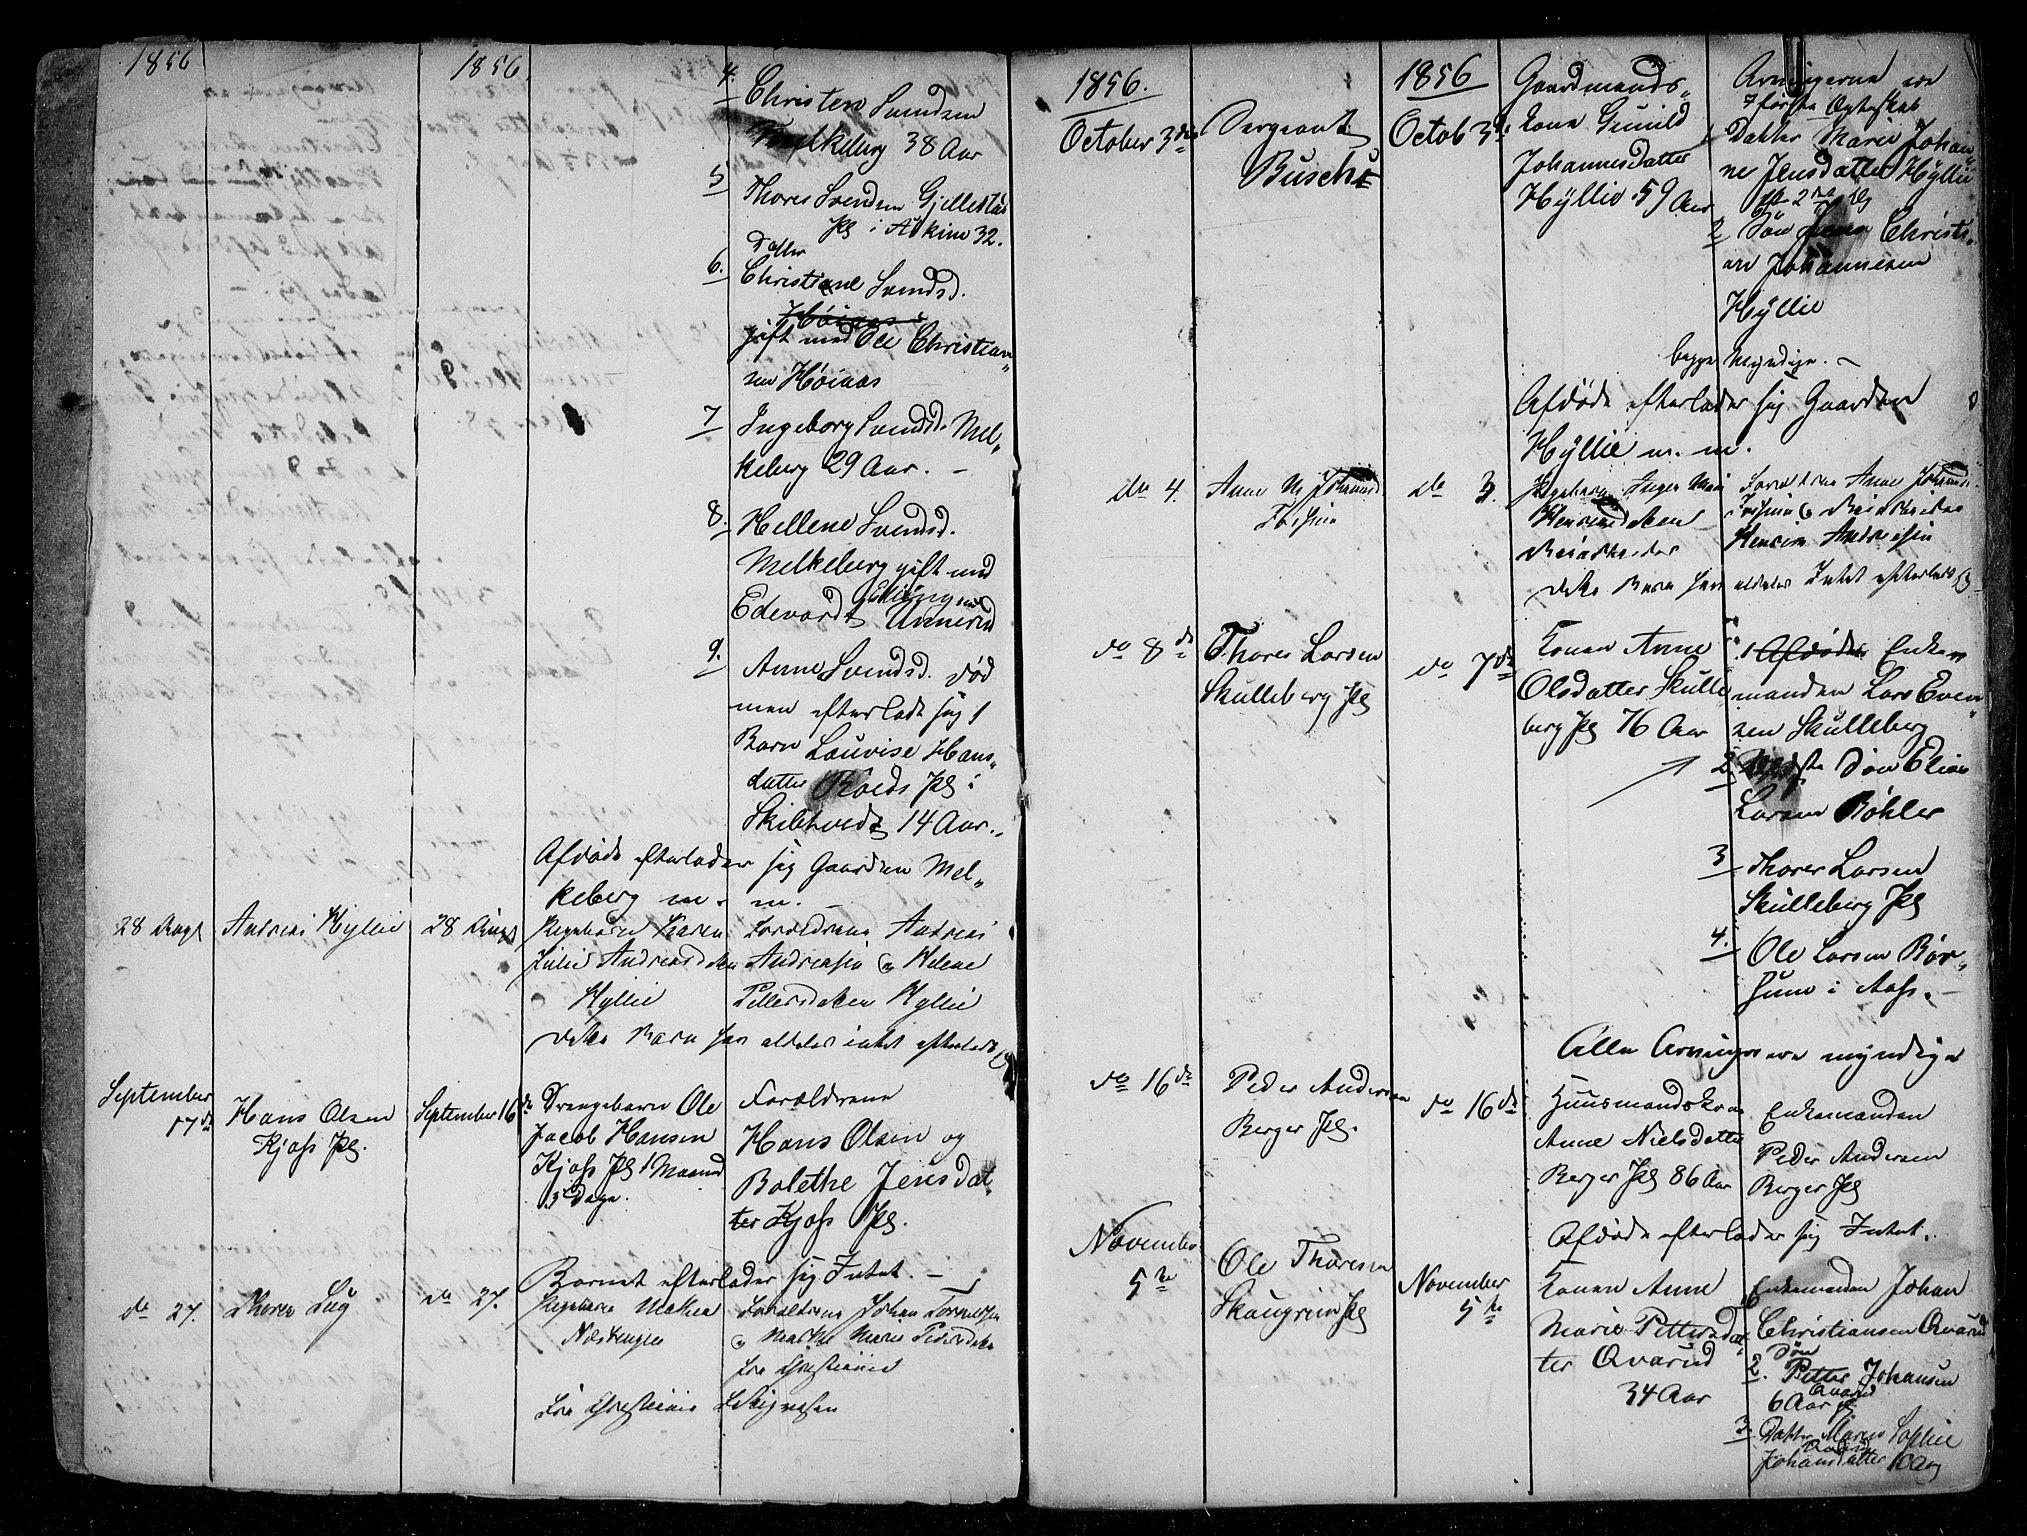 1856
1856
4. Christen Svendsen
Melkeberg 38 Aar
5 Thores Svendsen Gjellestad
Pl i Askim 32.
Datter
6. Christiane Svendsd.
Høiaas
gift med Ole Christian„
sen Høiaas
7 Ingeborg Svendsd. Mel„
keberg 29 Aar. –
8. Hellene Svendsd.
Melkeberg gift med
Edevardt
9. Anne Svendsd. død
men efterladt sig 1
Barn Louvise Hans„
datter Roeds Pl i
Skibtvedt 14 Aar.
Afdøde efterlader sig Gaarden Mel„
keberg m. m. –
28 Augt
Andreas Hyllie
28 Augt
Pigebarn Karen
Julie Andreasdatter
Hyllie
Forældrene Andreas
Andreasen og Helene
Pettersdatter Hyllie
dette Barn har aldeles intet efterladt sig
September
17de
Hans Olsen
Kjoss Pl.
September 16de
Drengebarn Ole
Jacob Hansen
Kjoss Pl 1 Maaned
3 Dage.
Forældrene
Hans Olsen og
Bolethe Jensdat„
ter Kjoss Pl.
Barnet efterlader sig Intet. –
do 27.
Thoren Lug
do 27.
Pigebarn Mathea
Forældrene Johan
og Marthe Marie Pedersdatter
fra Christiania
fra Christiania
1856.
October 3de
Sergeant
Busch
1856
Octob 3de
Gaardmands„
kone Gunild
Johannesdatter
Hyllie 59 Aar
Arvingerne ere
I første Ægteskab
Datter Maren Johan„
ne Jensdatter Hyllie
i 2det Æg
2 Søn Christi„
an Johannesen
Hyllie
begge Myndige. –
Afdøde efterlader sig Gaarden
Hyllie m. m.
do 4.
Anne M Johannesd
do 3.
Pigebarn Inger Marie
Henriksdatter
Forældrene Anne Johannesd.
Henrik Andreasen
dette Barn har aldeles Intet efterladt sig
do 8de
Thores Larsen
Skulleberg Pl
do 7de
Konen Anne
Olsdatter Skulle
berg Pl 76 Aar
1 Afdødes Enke„
manden Lars Even„
sen Skulleberg
2 Søn Elias
Larsen Bøhler
3 Thores Larsen
Skulleberg Pl
4. Ole Larsen Bør„
sum i Aas. –
Alle Arvinger ere myndige
do 16de
Peder Andersen
Berger Pl.
do 16de
Huusmandskone
Anne Nielsdatter
Berger Pl 86 Aar
Enkemanden
Peder Andersen
Berger Pl
Afdøde efterlader sig Intet.
November
5te
Ole Thoresen
Skougrim Pl
November
5te
Konen Anne
Marie Pettersdat„
ter Qvarud
34 Aar
Enkemanden Johan
Christiansen Qvarud
Søn
2. Petter Johansen
Qvarud
6 Aar
3. Datter Maren Sophie
Qvarud
Johansdatter